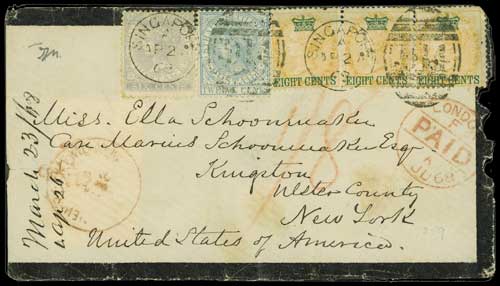 SINGAPORE
AP 2
68
SINGAPORE
AP 2
SIX CENTS
TWELVE CENTS
EIGHT CENTS
EIGHT CENTS
EIGHT CENTS
March 23/68
Miss. Ella Schoonmaker
Care Marius Schoonmaker Esqr
Kingston
Ulster County
New York
United States of America.
LONDON
F
PAID
68